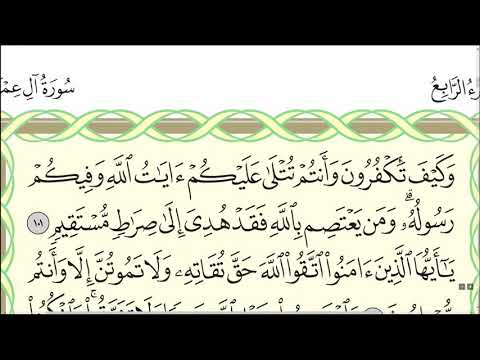 سُورَةُ آلِ عِمْ
ءُ الرَّابِعُ
وَكَيۡفَ تَكۡفُرُونَ وَأَنتُمۡ تُتۡلَىٰ عَلَيۡكُمۡ ءَايَٰتُ ٱللَّهِ وَفِيكُمۡ
رَسُولُهُۥۗ وَمَن يَعۡتَصِم بِٱللَّهِ فَقَدۡ هُدِيَ إِلَىٰ صِرَٰطٖ مُّسۡتَقِيمٖ ١٠١
يَٰٓأَيُّهَا ٱلَّذِينَ ءَامَنُواْ ٱتَّقُواْ ٱللَّهَ حَقَّ تُقَاتِهِۦ وَلَا تَمُوتُنَّ إِلَّا وَأَنتُم